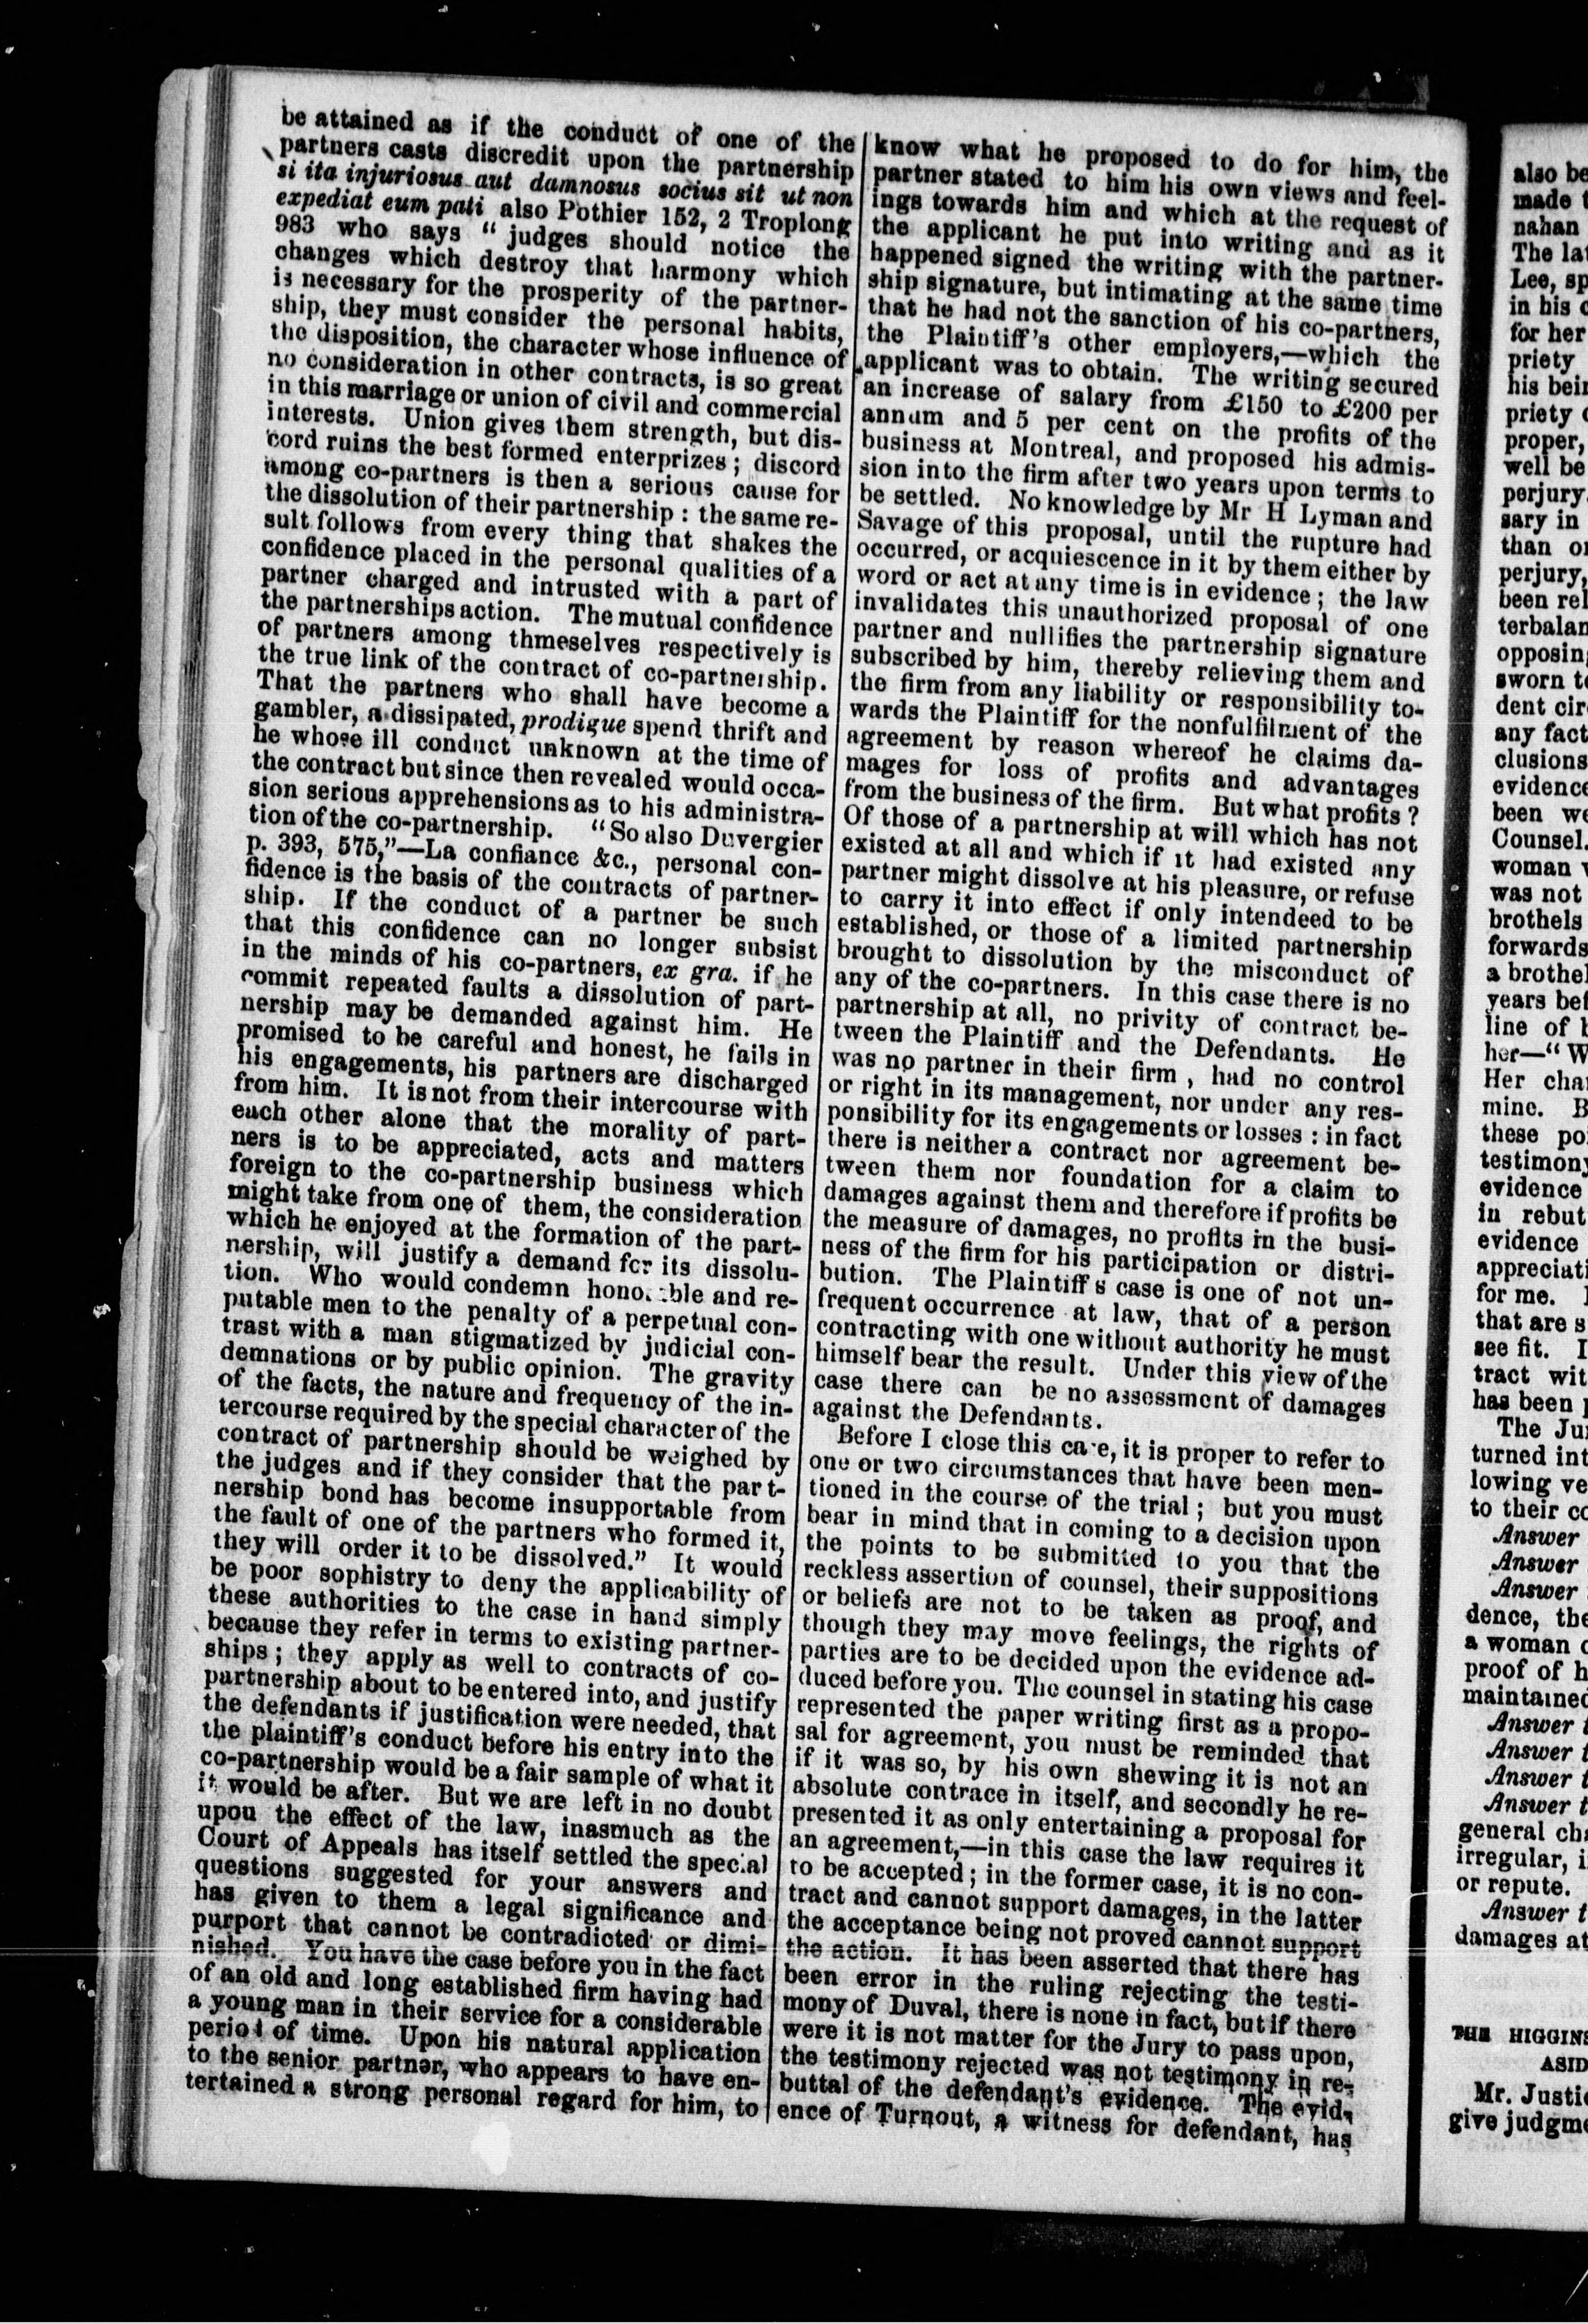 be attained as if the conduct of one of the
partners casts discredit upon the partnership
si ita injuriosus aut damnosus socius sit ut non
expediat eum pati also Pothier 152, 2 Troplong
983 who says " judges should notice the
changes which destroy that harmony which
is necessary for the prosperity of the partner-
ship, they must consider the personal habits,
the disposition, the character whose influence of
no consideration in other contracts, is so great
in this marriage or union of civil and commercial
interests. Union gives them strength, but dis-
cord ruins the best formed enterprizes ; discord
among co-partners is then a serious cause for
the dissolution of their partnership : the same re-
sult follows from every thing that shakes the
confidence placed in the personal qualities of a
partner charged and intrusted with a part of
the partnerships action. The mutual confidence
of partners among thmeselves respectively is
the true link of the contract of co-partnership.
That the partners who shall have become a
gambler, a dissipated, prodigue spend thrift and
he whose ill conduct unknown at the time of
the contract but since then revealed would occa-
sion serious apprehensions as to his administra-
tion of the co-partnership. "So also Duvergier
p. 393, 575,"—La confiance &c., personal con-
fidence is the basis of the contracts of partner-
ship. If the conduct of a partner be such
that this confidence can no longer subsist
in the minds of his co-partners, ex gra. if he
commit repeated faults a dissolution of part-
nership may be demanded against him. He
promised to be careful and honest, he fails in
his engagements, his partners are discharged
from him. It is not from their intercourse with
each other alone that the morality of part-
ners is to be appreciated, acts and matters
foreign to the co-partnership business which
might take from one of them, the consideration
which he enjoyed at the formation of the part-
nership, will justify a demand for its dissolu-
tion. Who would condemn honorable and re-
putable men to the penalty of a perpetual con-
trast with a man stigmatized by judicial con-
demnations or by public opinion. The gravity
of the facts, the nature and frequency of the in-
tercourse required by the special character of the
contract of partnership should be weighed by
the judges and if they consider that the part-
nership bond has become insupportable from
the fault of one of the partners who formed it,
they will order it to be dissolved." It would
be poor sophistry to deny the applicability of
these authorities to the case in hand simply
because they refer in terms to existing partner-
ships ; they apply as well to contracts of co-
partnership about to be entered into, and justify
the defendants if justification were needed, that
the plaintiff's conduct before his entry into the
co-partnership would be a fair sample of what it
it would be after. But we are left in no doubt
upon the effect of the law, inasmuch as the
Court of Appeals has itself settled the special
questions suggested for your answers and
has given to them a legal significance and
purport that cannot be contradicted or dimi-
nished. You have the case before you in the fact
of an old and long established firm having had
a young man in their service for a considerable
period of time. Upon his natural application
to the senior partner, who appears to have en-
tertained a strong personal regard for him, to
know what he proposed to do for him, the
partner stated to him his own views and feel-
ings towards him and which at the request of
the applicant he put into writing and as it
happened signed the writing with the partner-
ship signature, but intimating at the same time
that he had not the sanction of his co-partners,
the Plaintiff's other employers,—which the
applicant was to obtain. The writing secured
an increase of salary from £150 to £200 per
annum and 5 per cent on the profits of the
business at Montreal, and proposed his admis-
sion into the firm after two years upon terms to
be settled. No knowledge by Mr H Lyman and
Savage of this proposal, until the rupture had
occurred, or acquiescence in it by them either by
word or act at any time is in evidence ; the law
invalidates this unauthorized proposal of one
partner and nullifies the partnership signature
subscribed by him, thereby relieving them and
the firm from any liability or responsibility to-
wards the Plaintiff for the nonfulfilment of the
agreement by reason whereof he claims da-
mages for loss of profits and advantages
from the business of the firm. But what profits ?
Of those of a partnership at will which has not
existed at all and which if it had existed any
partner might dissolve at his pleasure, or refuse
to carry it into effect if only intendeed to be
established, or those of a limited partnership
brought to dissolution by the misconduct of
any of the co-partners. In this case there is no
partnership at all, no privity of contract be-
tween the Plaintiff and the Defendants. He
was no partner in their firm , had no control
or right in its management, nor under any res-
ponsibility for its engagements or losses : in fact
there is neither a contract nor agreement be-
tween them nor foundation for a claim to
damages against them and therefore if profits be
the measure of damages, no profits in the busi-
ness of the firm for his participation or distri-
bution. The Plaintiff s case is one of not un-
frequent occurrence at law, that of a person
contracting with one without authority he must
himself bear the result. Under this view of the
case there can be no assessment of damages
against the Defendants.
Before I close this care, it is proper to refer to
one or two circumstances that have been men-
tioned in the course of the trial ; but you must
bear in mind that in coming to a decision upon
the points to be submitted to you that the
reckless assertion of counsel, their suppositions
or beliefs are not to be taken as proof, and
though they may move feelings, the rights of
parties are to be decided upon the evidence ad-
duced before you. The counsel in stating his case
represented the paper writing first as a propo-
sal for agreement, you must be reminded that
if it was so, by his own shewing it is not an
absolute contrace in itself, and secondly he re-
presented it as only entertaining a proposal for
an agreement,—in this case the law requires it
to be accepted ; in the former case, it is no con-
tract and cannot support damages, in the latter
the acceptance being not proved cannot support
the action. It has been asserted that there has
been error in the ruling rejecting the testi-
mony of Duval, there is none in fact, but if there
were it is not matter for the Jury to pass upon,
the testimony rejected was not testimony in re-
buttal of the defendant's evidence. The evid-
ence of Turnout, a witness for defendant, has
also be
made t
nahan
The lat
Lee, sp
in his c
for her
priety
his bein
priety
proper,
well be
perjury
sary in
than or
perjury,
been rel
terbalan
opposin
sworn to
dent cir
any fact
clusions
evidence
been we
Counsel.
woman
was not
brothels
forwards
a brothel
years bef
line of
her—" W
Her char
mine. B
these poi
testimony
evidence
in rebut
evidence
appreciati
for me.
that are s
see fit. I
tract wit
has been
The Ju
turned int
lowing ve
to their co
Answer
Answer
Answer
dence, the
a woman
proof of h
maintained
Answer t
Answer t
Answer t
Answer t
general cha
irregular, i
or repute.
Answer t
damages at
THE HIGGINS
ASID
Mr. Justic
give judgme